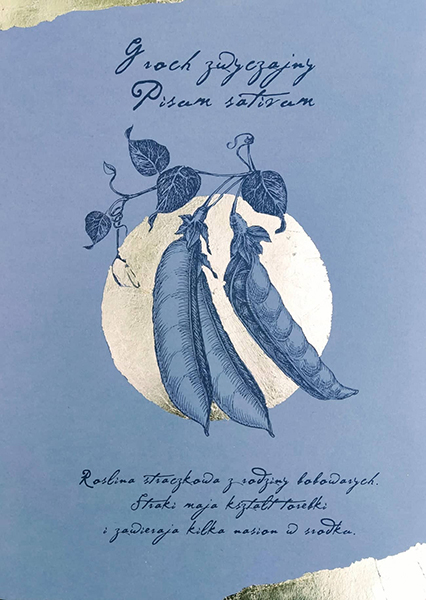 Groch zwyczajny
Pisum sativum
Roslina straczkowa z rodziny bobowatych.
Straki maja ksztalt torebki
i zawieraja kilka nasion w srodku.